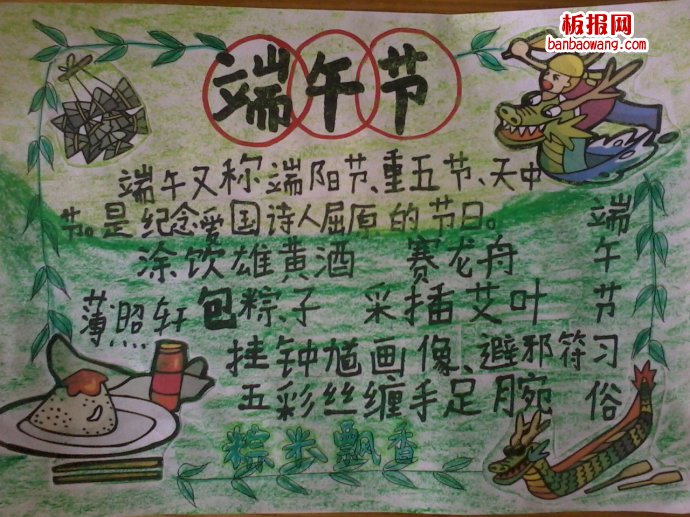 板报网
banbaowang.com
端午节
端午又称端阳节、重五节、天中
节。是纪念爱国诗人屈原的节日。
涂饮雄黄酒 赛龙舟
薄照轩
包粽子 采插艾叶
挂钟馗画像、避邪符
五彩丝缠手足腕
端午节习俗
粽米飘香